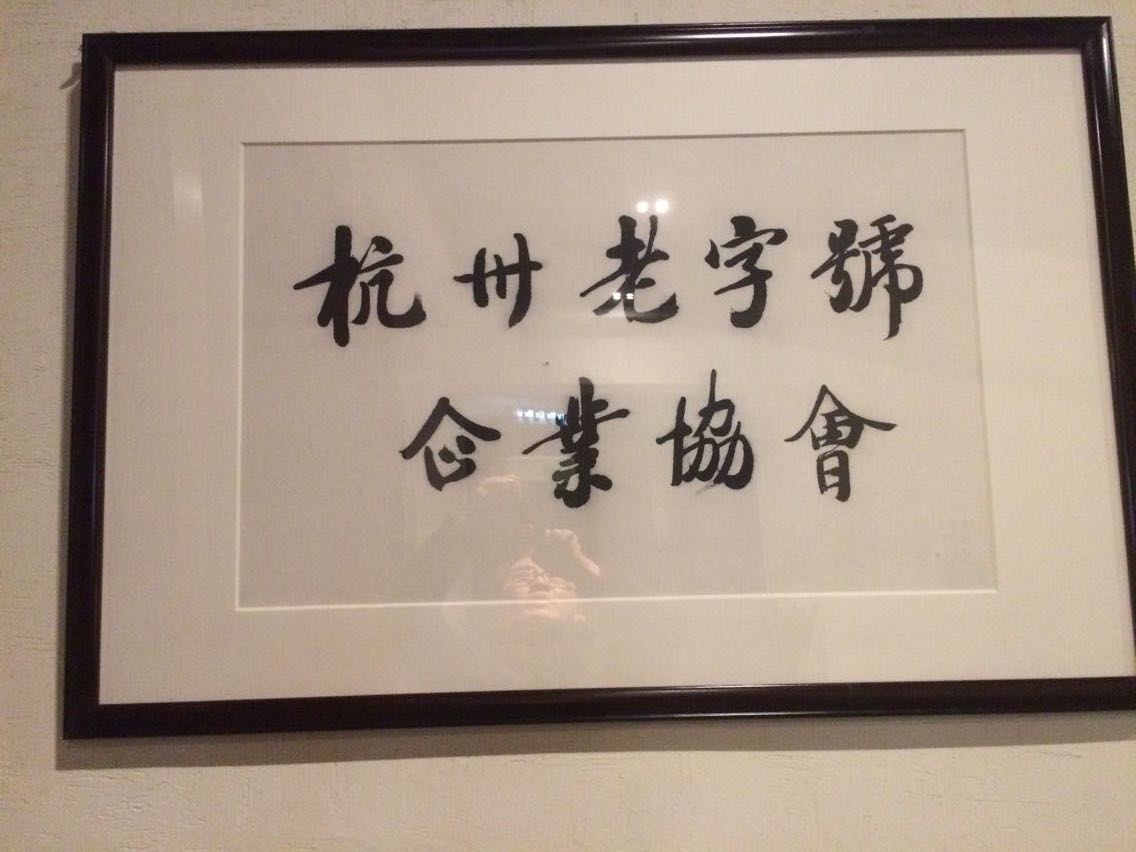 杭州老字號
企業協會